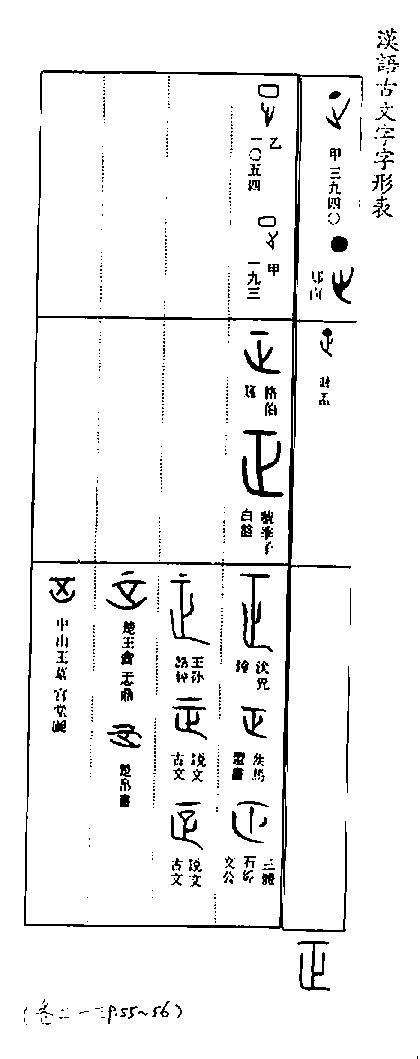 漢語古文字字形表
甲三九四〇
乙一〇五四
甲一九三
格伯簋
虢季子白盤
沇兒鐘
侯馬盟書
三體石經文公
王孫誥鐘
說文古文
說文古文
楚王酓忎鼎
楚帛書
中山王墓宮堂圖
正
(卷二一三P.55~56)